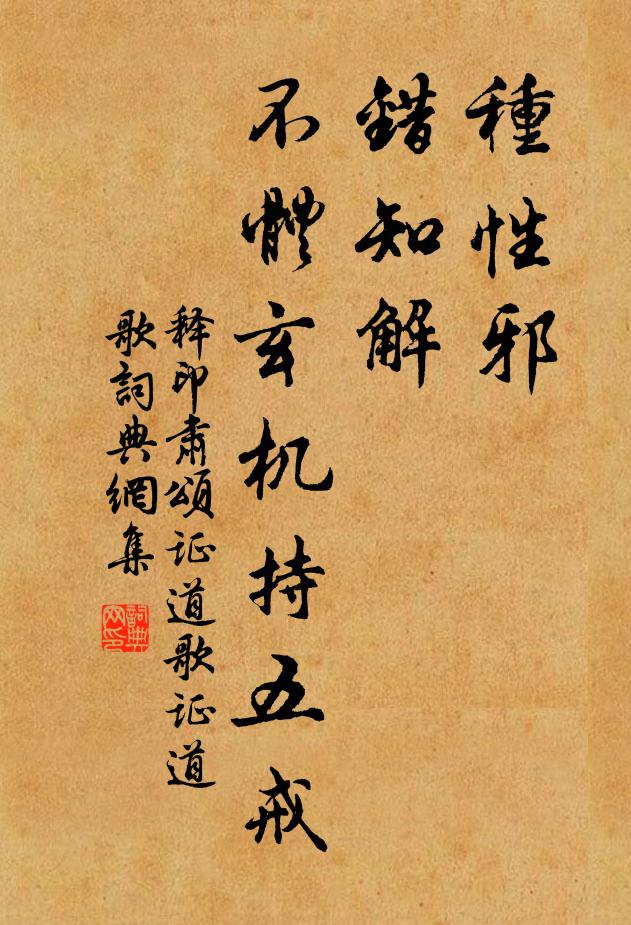 種性邪
錯知解
不體玄机持五戒
释印肃颂证道歌证道
歌詞典網集
詞典網印